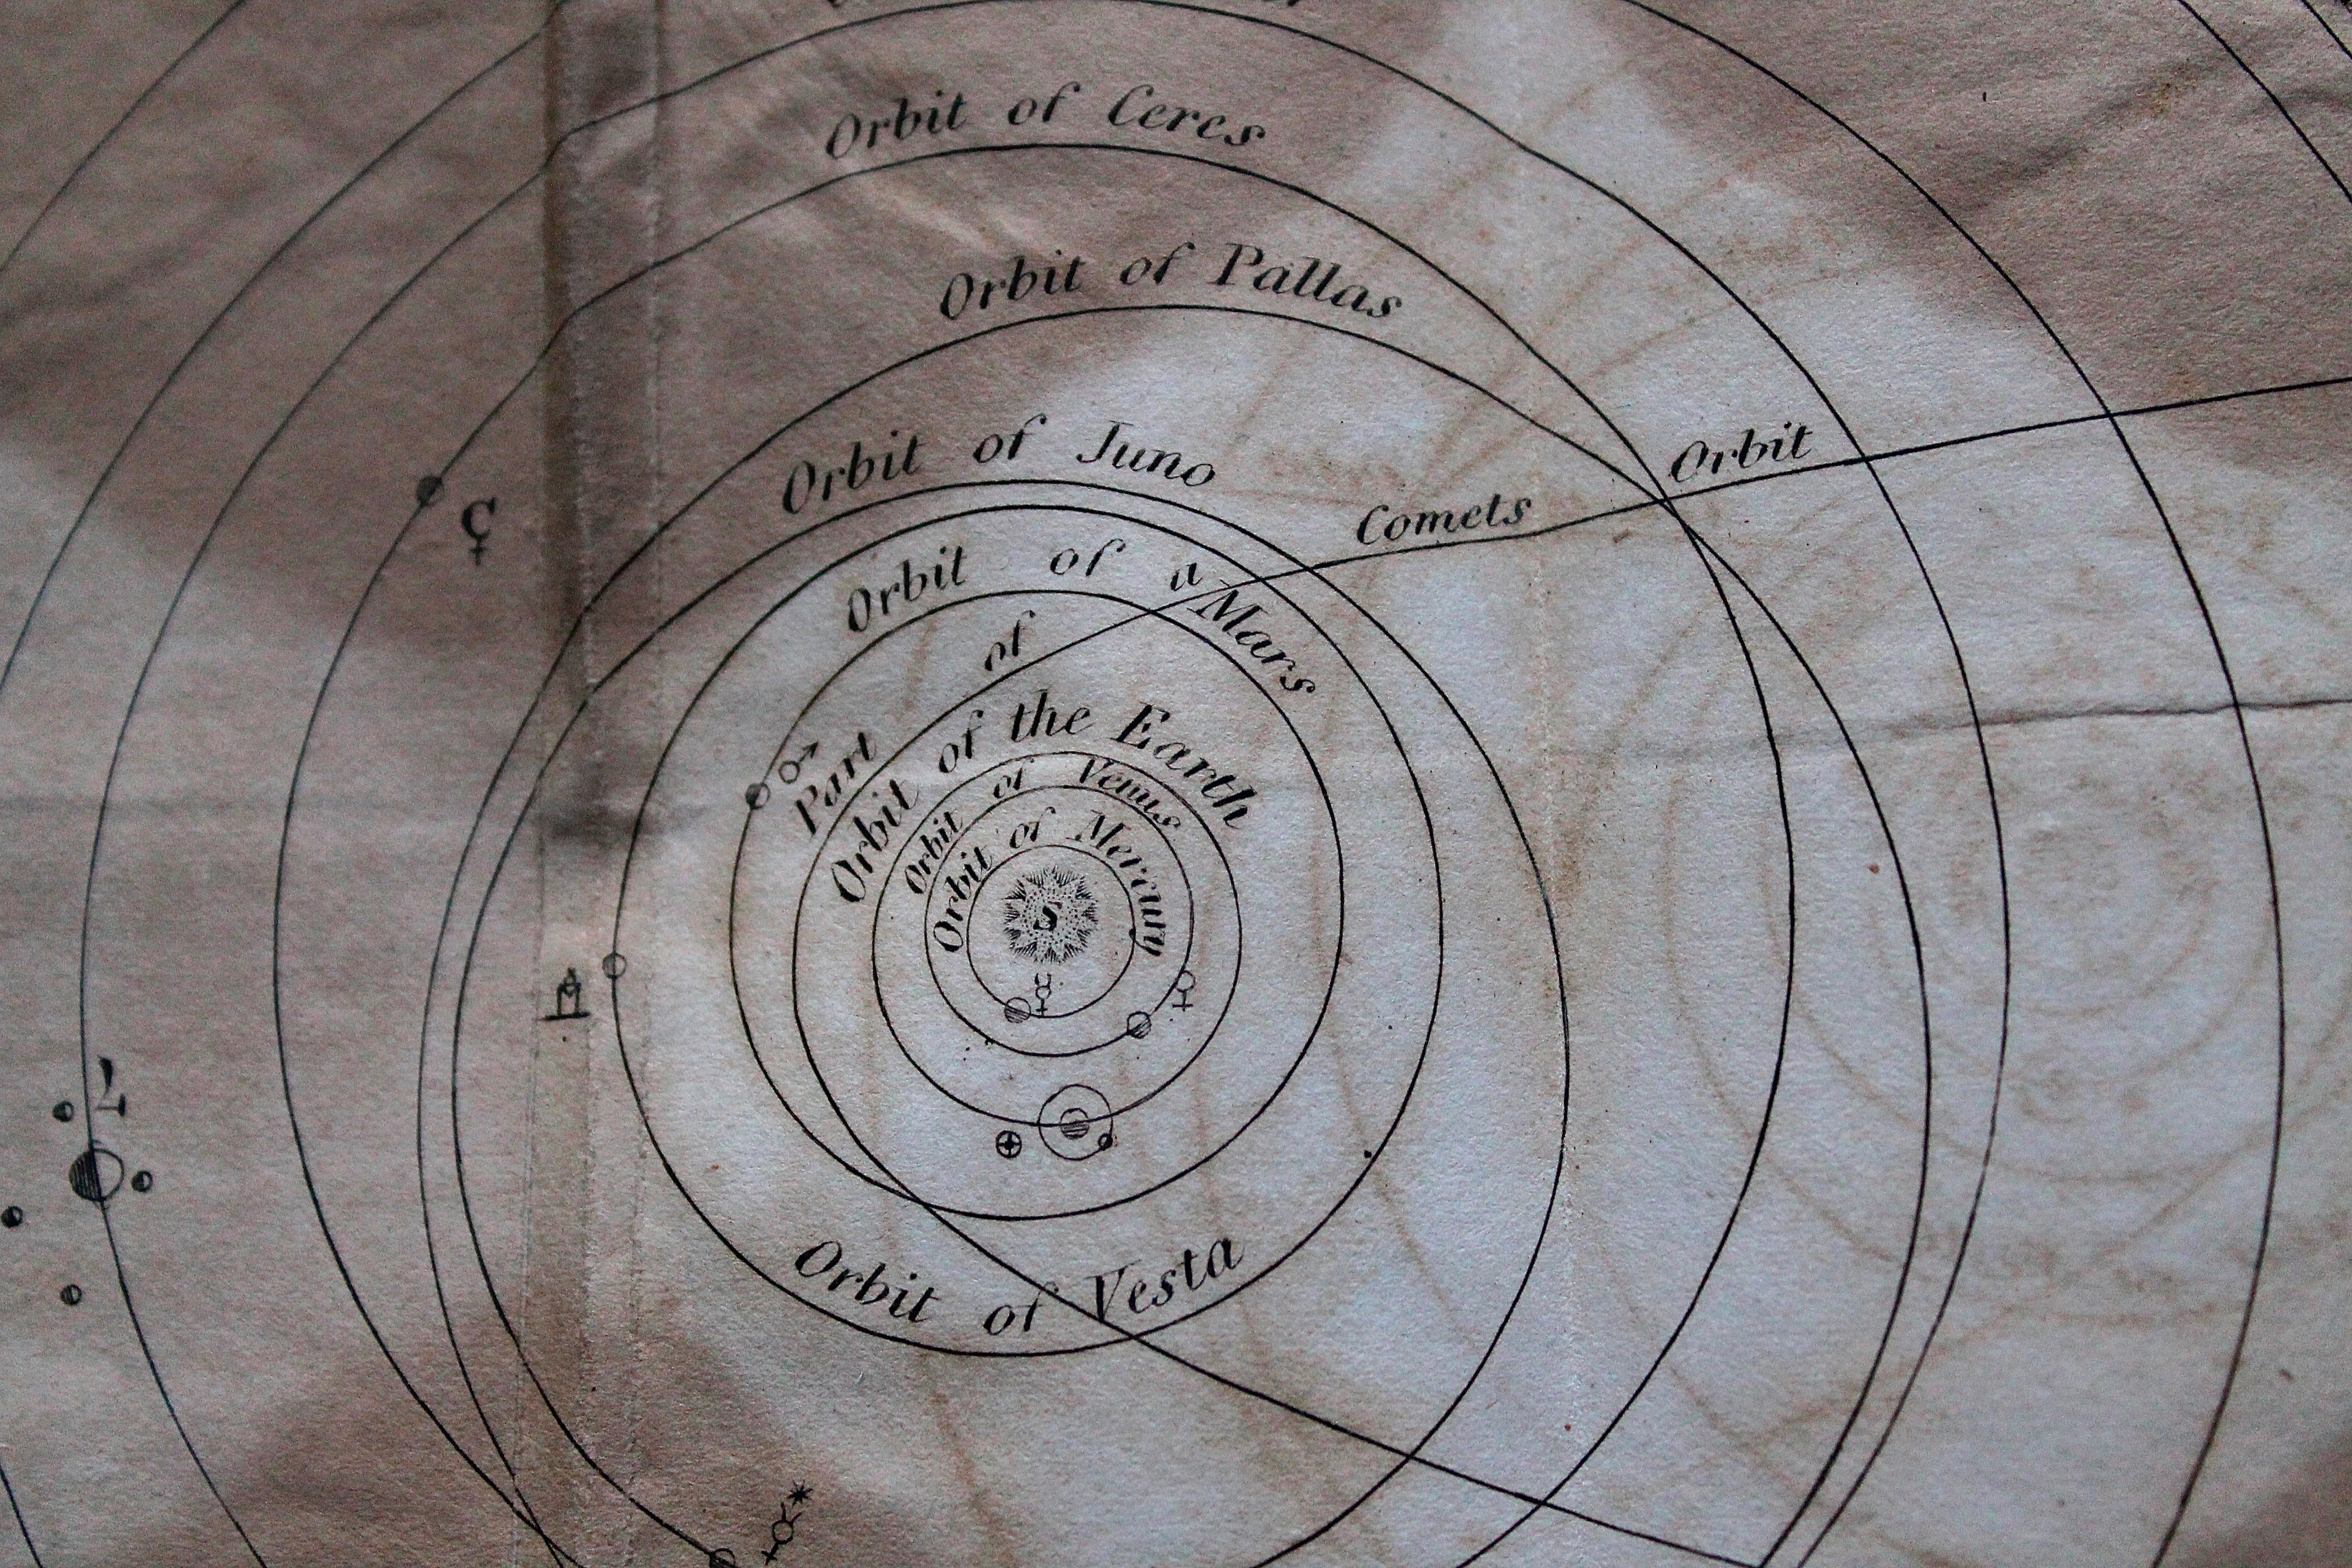 Orbit of Ceres
Orbit of Pallas
Orbit of Juno
Orbit of Mars
Part of a Comets Orbit
Orbit of the Earth
Orbit of Venus
Orbit of Mercury
S
Orbit of Vesta